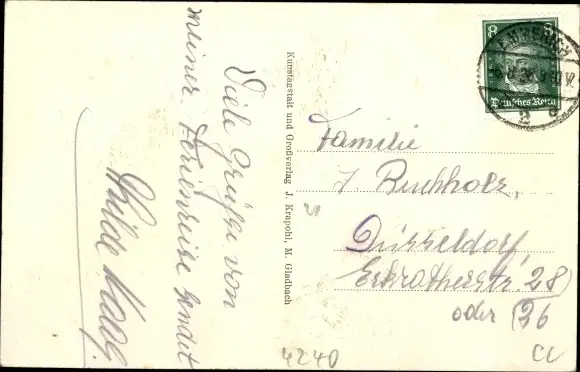 Viele Grüße von
meiner Ferienreise sendet
Hilde
Kunstanstalt und Großverlag J. Krapohl, M. Gladbach
8
Deutsches Reich
Familie
J. Buchholz,
Düsseldorf,
Erkratherstr 28
oder 26
4240